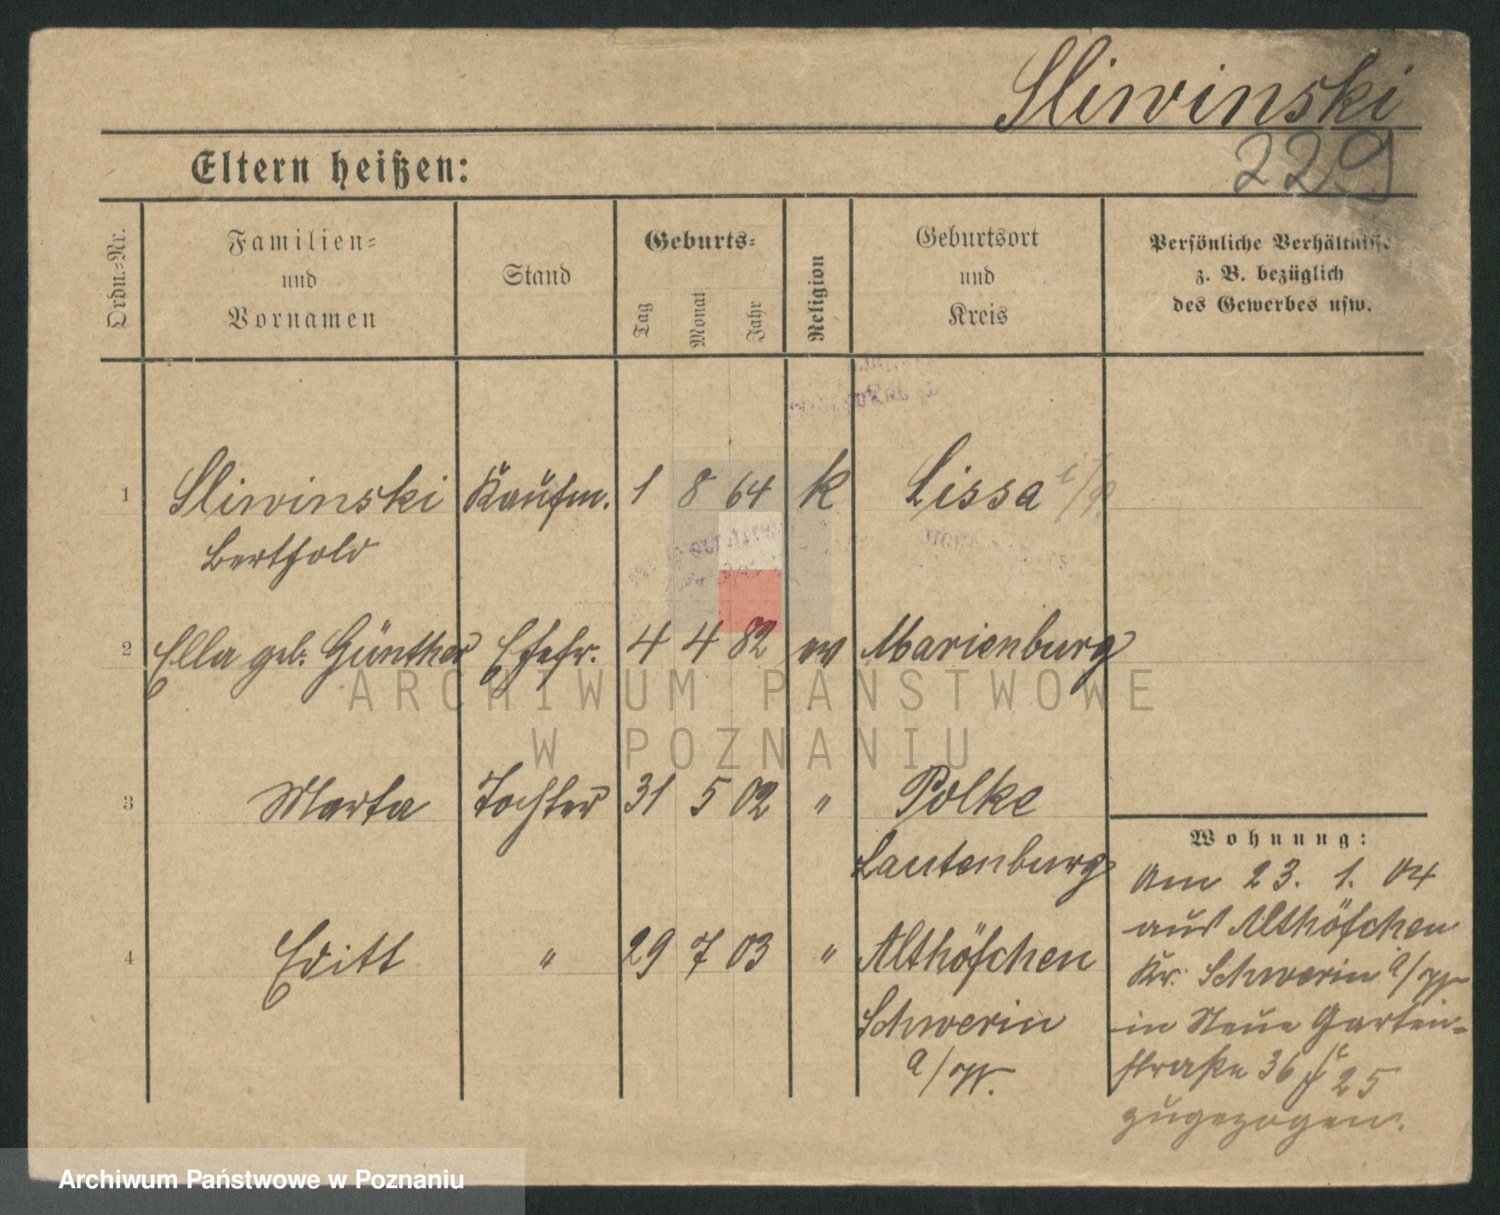 Sliwinski
229
Eltern heißen:
Ordn.=Nr.
Familien=
und
Vornamen
Stand
Geburts=
Tag
Monat
Jahr
Religion
Geburtsort
und
Kreis
Persönliche Verhältnisse
z. B. bezüglich
des Gewerbes usw.
1 Sliwinski Kaufm. 1 8 64 k Lissa i/P
Berthold
2 Ella geb. Günther Ehefr. 4 4 82 ev Marienburg
ARCHIWUM PAŃSTWOWE
W POZNANIU
3 Marta Tochter 31 5 02 " Polke
Lautenburg
4 Edith " 29 7 03 " Althöfchen
Schwerin
a/W.
Wohnung:
Am 23. 1. 04
aus Althöfchen
Kr. Schwerin a/W
in Neue Garten=
straße 36 25
zugezogen.
Archiwum Państwowe w Poznaniu